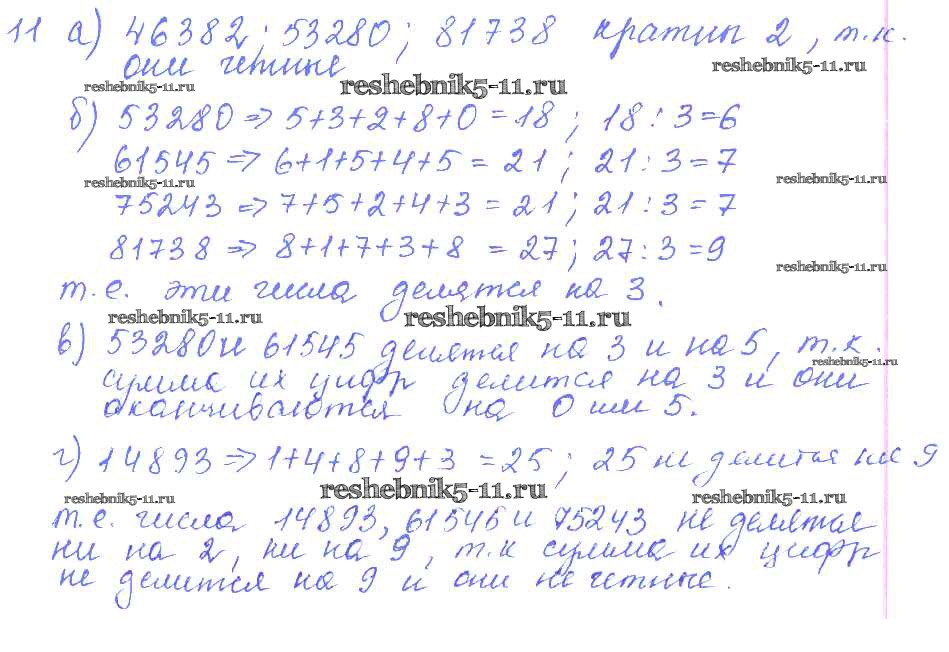 11 а) 46382; 53280; 81738 кратны 2, т.к.
они четные
reshebnik5-11.ru reshebnik5-11.ru reshebnik5-11.ru
б) 53280 => 5+3+2+8+0 = 18; 18:3=6
61545 => 6+1+5+4+5 = 21; 21:3=7
reshebnik5-11.ru reshebnik5-11.ru
75243 => 7+5+2+4+3 = 21; 21:3=7
81738 => 8+1+7+3+8 = 27; 27:3=9
reshebnik5-11.ru
т.е. эти числа делятся на 3.
reshebnik5-11.ru reshebnik5-11.ru
в) 53280 и 61545 делятся на 3 и на 5, т.к.
reshebnik5-11.ru
сумма их цифр делится на 3 и они
оканчиваются на 0 или 5.
г) 14893 => 1+4+8+9+3 = 25; 25 не делится на 9
reshebnik5-11.ru reshebnik5-11.ru reshebnik5-11.ru
т.е. числа 14893, 61545 и 75243 не делятся
ни на 2, ни на 9, т.к сумма их цифр
не делится на 9 и они не четные.